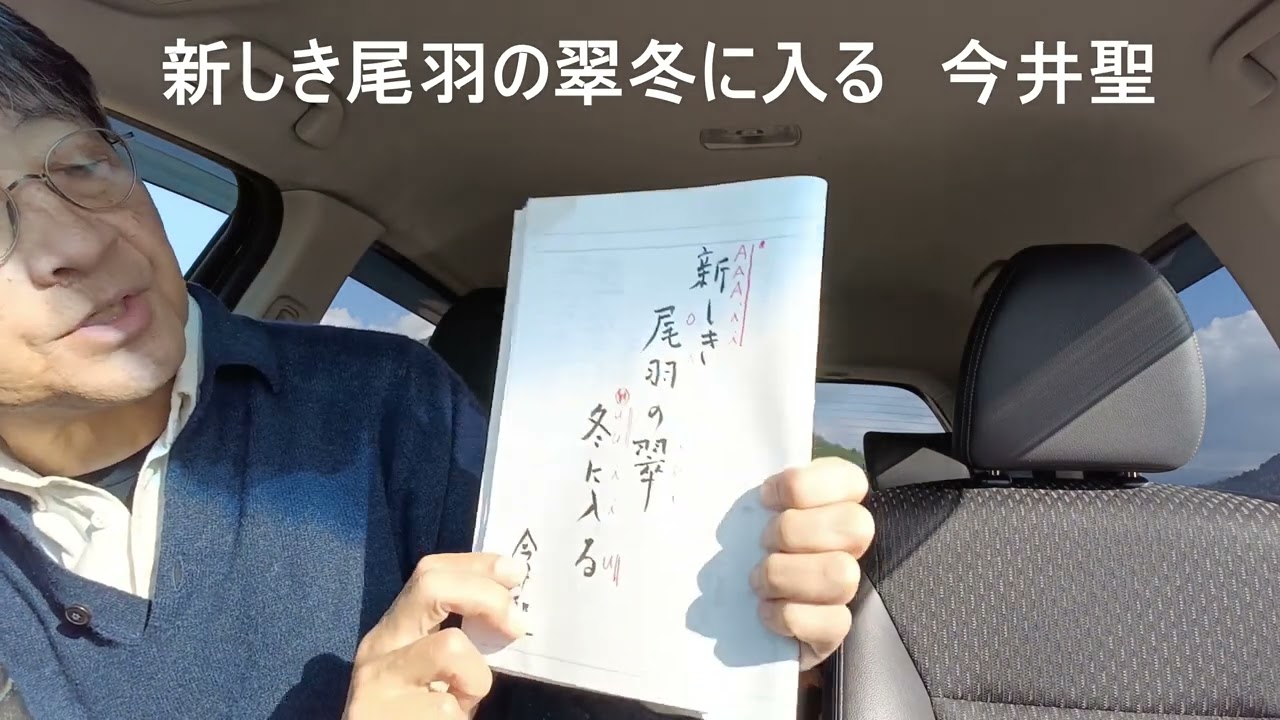 新しき尾羽の翠冬に入る　今井聖
新しき
尾羽の翠
冬に入る
今井聖